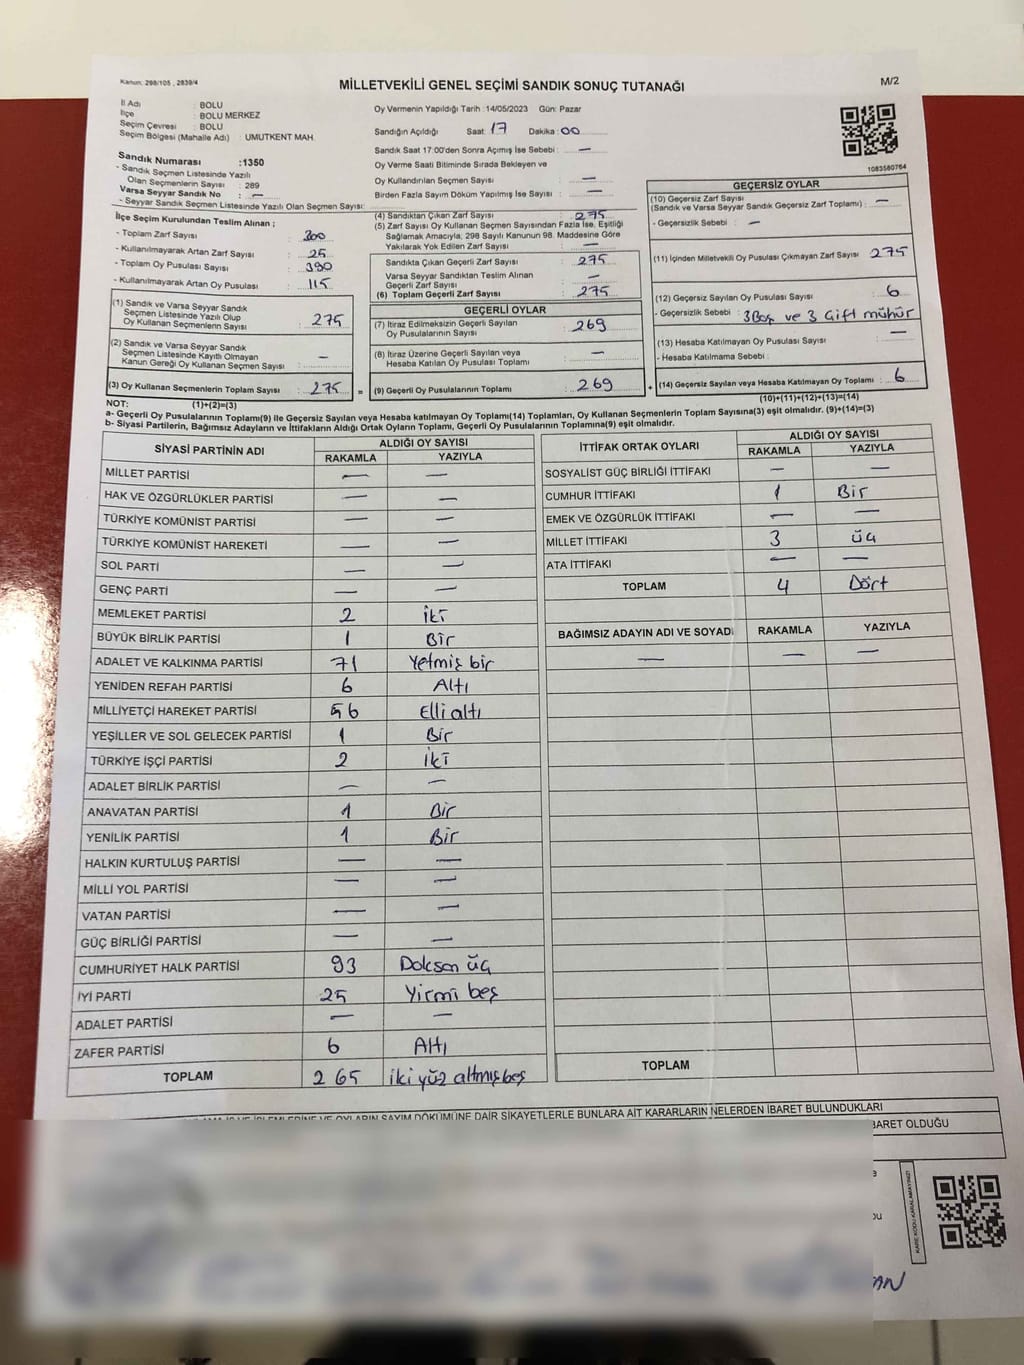 Kanun: 298/105 , 2839/4
MİLLETVEKİLİ GENEL SEÇİMİ SANDIK SONUÇ TUTANAĞI
M/2
İl Adı : BOLU
İlçe : BOLU MERKEZ
Seçim Çevresi : BOLU
Seçim Bölgesi (Mahalle Adı) : UMUTKENT MAH.
Sandık Numarası :1350
- Sandık Seçmen Listesinde Yazılı
Olan Seçmenlerin Sayısı : 289
Varsa Seyyar Sandık No : —
- Seyyar Sandık Seçmen Listesinde Yazılı Olan Seçmen Sayısı:
Oy Vermenin Yapıldığı Tarih :14/05/2023 Gün: Pazar
Sandığın Açıldığı Saat: 17 Dakika: 00
Sandık Saat 17:00'den Sonra Açımış İse Sebebi : —
Oy Verme Saati Bitiminde Sırada Bekleyen ve
Oy Kullandırılan Seçmen Sayısı : —
Birden Fazla Sayım Döküm Yapılmış İse Sayısı : —
1083580764
İlçe Seçim Kurulundan Teslim Alınan ;
- Toplam Zarf Sayısı : 300
- Kullanılmayarak Artan Zarf Sayısı : 25
- Toplam Oy Pusulası Sayısı : 390
- Kullanılmayarak Artan Oy Pusulası : 115
(1) Sandık ve Varsa Seyyar Sandık
Seçmen Listesinde Yazılı Olup
Oy Kullanan Seçmenlerin Sayısı : 275
(2) Sandık ve Varsa Seyyar Sandık
Seçmen Listesinde Kayıtlı Olmayan
Kanun Gereği Oy Kullanan Seçmen Sayısı : —
(3) Oy Kullanan Seçmenlerin Toplam Sayısı : 275 =
(4) Sandıktan Çıkan Zarf Sayısı : 275
(5) Zarf Sayısı Oy Kullanan Seçmen Sayısından Fazla İse, Eşitliği
Sağlamak Amacıyla, 298 Sayılı Kanunun 98. Maddesine Göre
Yakılarak Yok Edilen Zarf Sayısı : —
Sandıkta Çıkan Geçerli Zarf Sayısı : 275
Varsa Seyyar Sandıktan Teslim Alınan
Geçerli Zarf Sayısı : —
(6) Toplam Geçerli Zarf Sayısı : 275
GEÇERLİ OYLAR
(7) İtiraz Edilmeksizin Geçerli Sayılan
Oy Pusulalarının Sayısı : 269
(8) İtiraz Üzerine Geçerli Sayılan veya
Hesaba Katılan Oy Pusulası Toplamı : —
(9) Geçerli Oy Pusulalarının Toplamı : 269 +
GEÇERSİZ OYLAR
(10) Geçersiz Zarf Sayısı
(Sandık ve Varsa Seyyar Sandık Geçersiz Zarf Toplamı) : —
- Geçersizlik Sebebi : —
(11) İçinden Milletvekili Oy Pusulası Çıkmayan Zarf Sayısı : 275
(12) Geçersiz Sayılan Oy Pusulası Sayısı : 6
- Geçersizlik Sebebi : 3 Boş ve 3 Çift mühür
(13) Hesaba Katılmayan Oy Pusulası Sayısı : —
- Hesaba Katılmama Sebebi :
(14) Geçersiz Sayılan veya Hesaba Katılmayan Oy Toplamı : 6
NOT: (1)+(2)=(3)
(10)+(11)+(12)+(13)=(14)
a- Geçerli Oy Pusulalarının Toplamı(9) ile Geçersiz Sayılan veya Hesaba katılmayan Oy Toplamı(14) Toplamları, Oy Kullanan Seçmenlerin Toplam Sayısına(3) eşit olmalıdır. (9)+(14)=(3)
b- Siyasi Partilerin, Bağımsız Adayların ve İttifakların Aldığı Ortak Oyların Toplamı, Geçerli Oy Pusulalarının Toplamına(9) eşit olmalıdır.
SİYASİ PARTİNİN ADI ALDIĞI OY SAYISI
RAKAMLA YAZIYLA
MİLLET PARTİSİ — —
HAK VE ÖZGÜRLÜKLER PARTİSİ — —
TÜRKİYE KOMÜNİST PARTİSİ — —
TÜRKİYE KOMÜNİST HAREKETİ — —
SOL PARTİ — —
GENÇ PARTİ — —
MEMLEKET PARTİSİ 2 İki
BÜYÜK BİRLİK PARTİSİ 1 Bir
ADALET VE KALKINMA PARTİSİ 71 Yetmiş bir
YENİDEN REFAH PARTİSİ 6 Altı
MİLLİYETÇİ HAREKET PARTİSİ 56 Elli altı
YEŞİLLER VE SOL GELECEK PARTİSİ 1 Bir
TÜRKİYE İŞÇİ PARTİSİ 2 İki
ADALET BİRLİK PARTİSİ — —
ANAVATAN PARTİSİ 1 Bir
YENİLİK PARTİSİ 1 Bir
HALKIN KURTULUŞ PARTİSİ — —
MİLLİ YOL PARTİSİ — —
VATAN PARTİSİ — —
GÜÇ BİRLİĞİ PARTİSİ — —
CUMHURİYET HALK PARTİSİ 93 Doksan üç
İYİ PARTİ 25 Yirmi beş
ADALET PARTİSİ — —
ZAFER PARTİSİ 6 Altı
TOPLAM 265 iki yüz altmış beş
İTTİFAK ORTAK OYLARI ALDIĞI OY SAYISI
RAKAMLA YAZIYLA
SOSYALİST GÜÇ BİRLİĞİ İTTİFAKI — —
CUMHUR İTTİFAKI 1 Bir
EMEK VE ÖZGÜRLÜK İTTİFAKI — —
MİLLET İTTİFAKI 3 üç
ATA İTTİFAKI — —
TOPLAM 4 Dört
BAĞIMSIZ ADAYIN ADI VE SOYADI RAKAMLA YAZIYLA
— — —
TOPLAM
OYLARIN SAYIM DÖKÜMÜNE DAİR ŞİKAYETLERLE BUNLARA AİT KARARLARIN NELERDEN İBARET BULUNDUKLARI
BARET OLDUĞU
KARE KODU KARALAMAYINIZ!